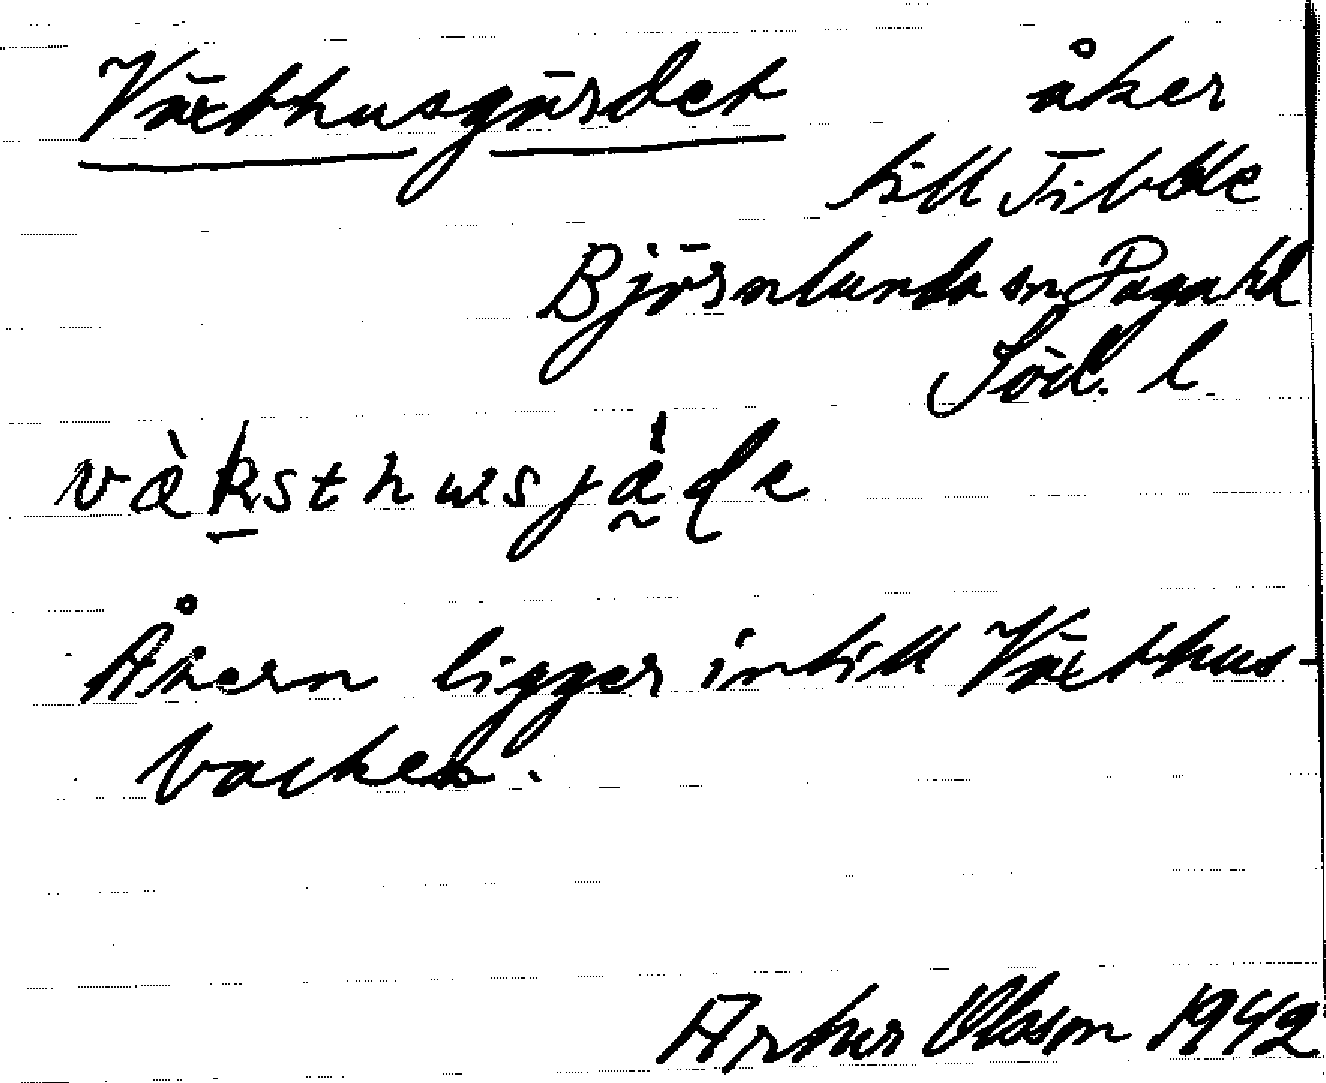 Växthusgärdet åker
till Tibble
Björnlunda sn Daga hd
Söd. l.
vàksthusjä́ḍe
Åkern ligger intill Växthus-
backen.
Arthur Olsson 1942